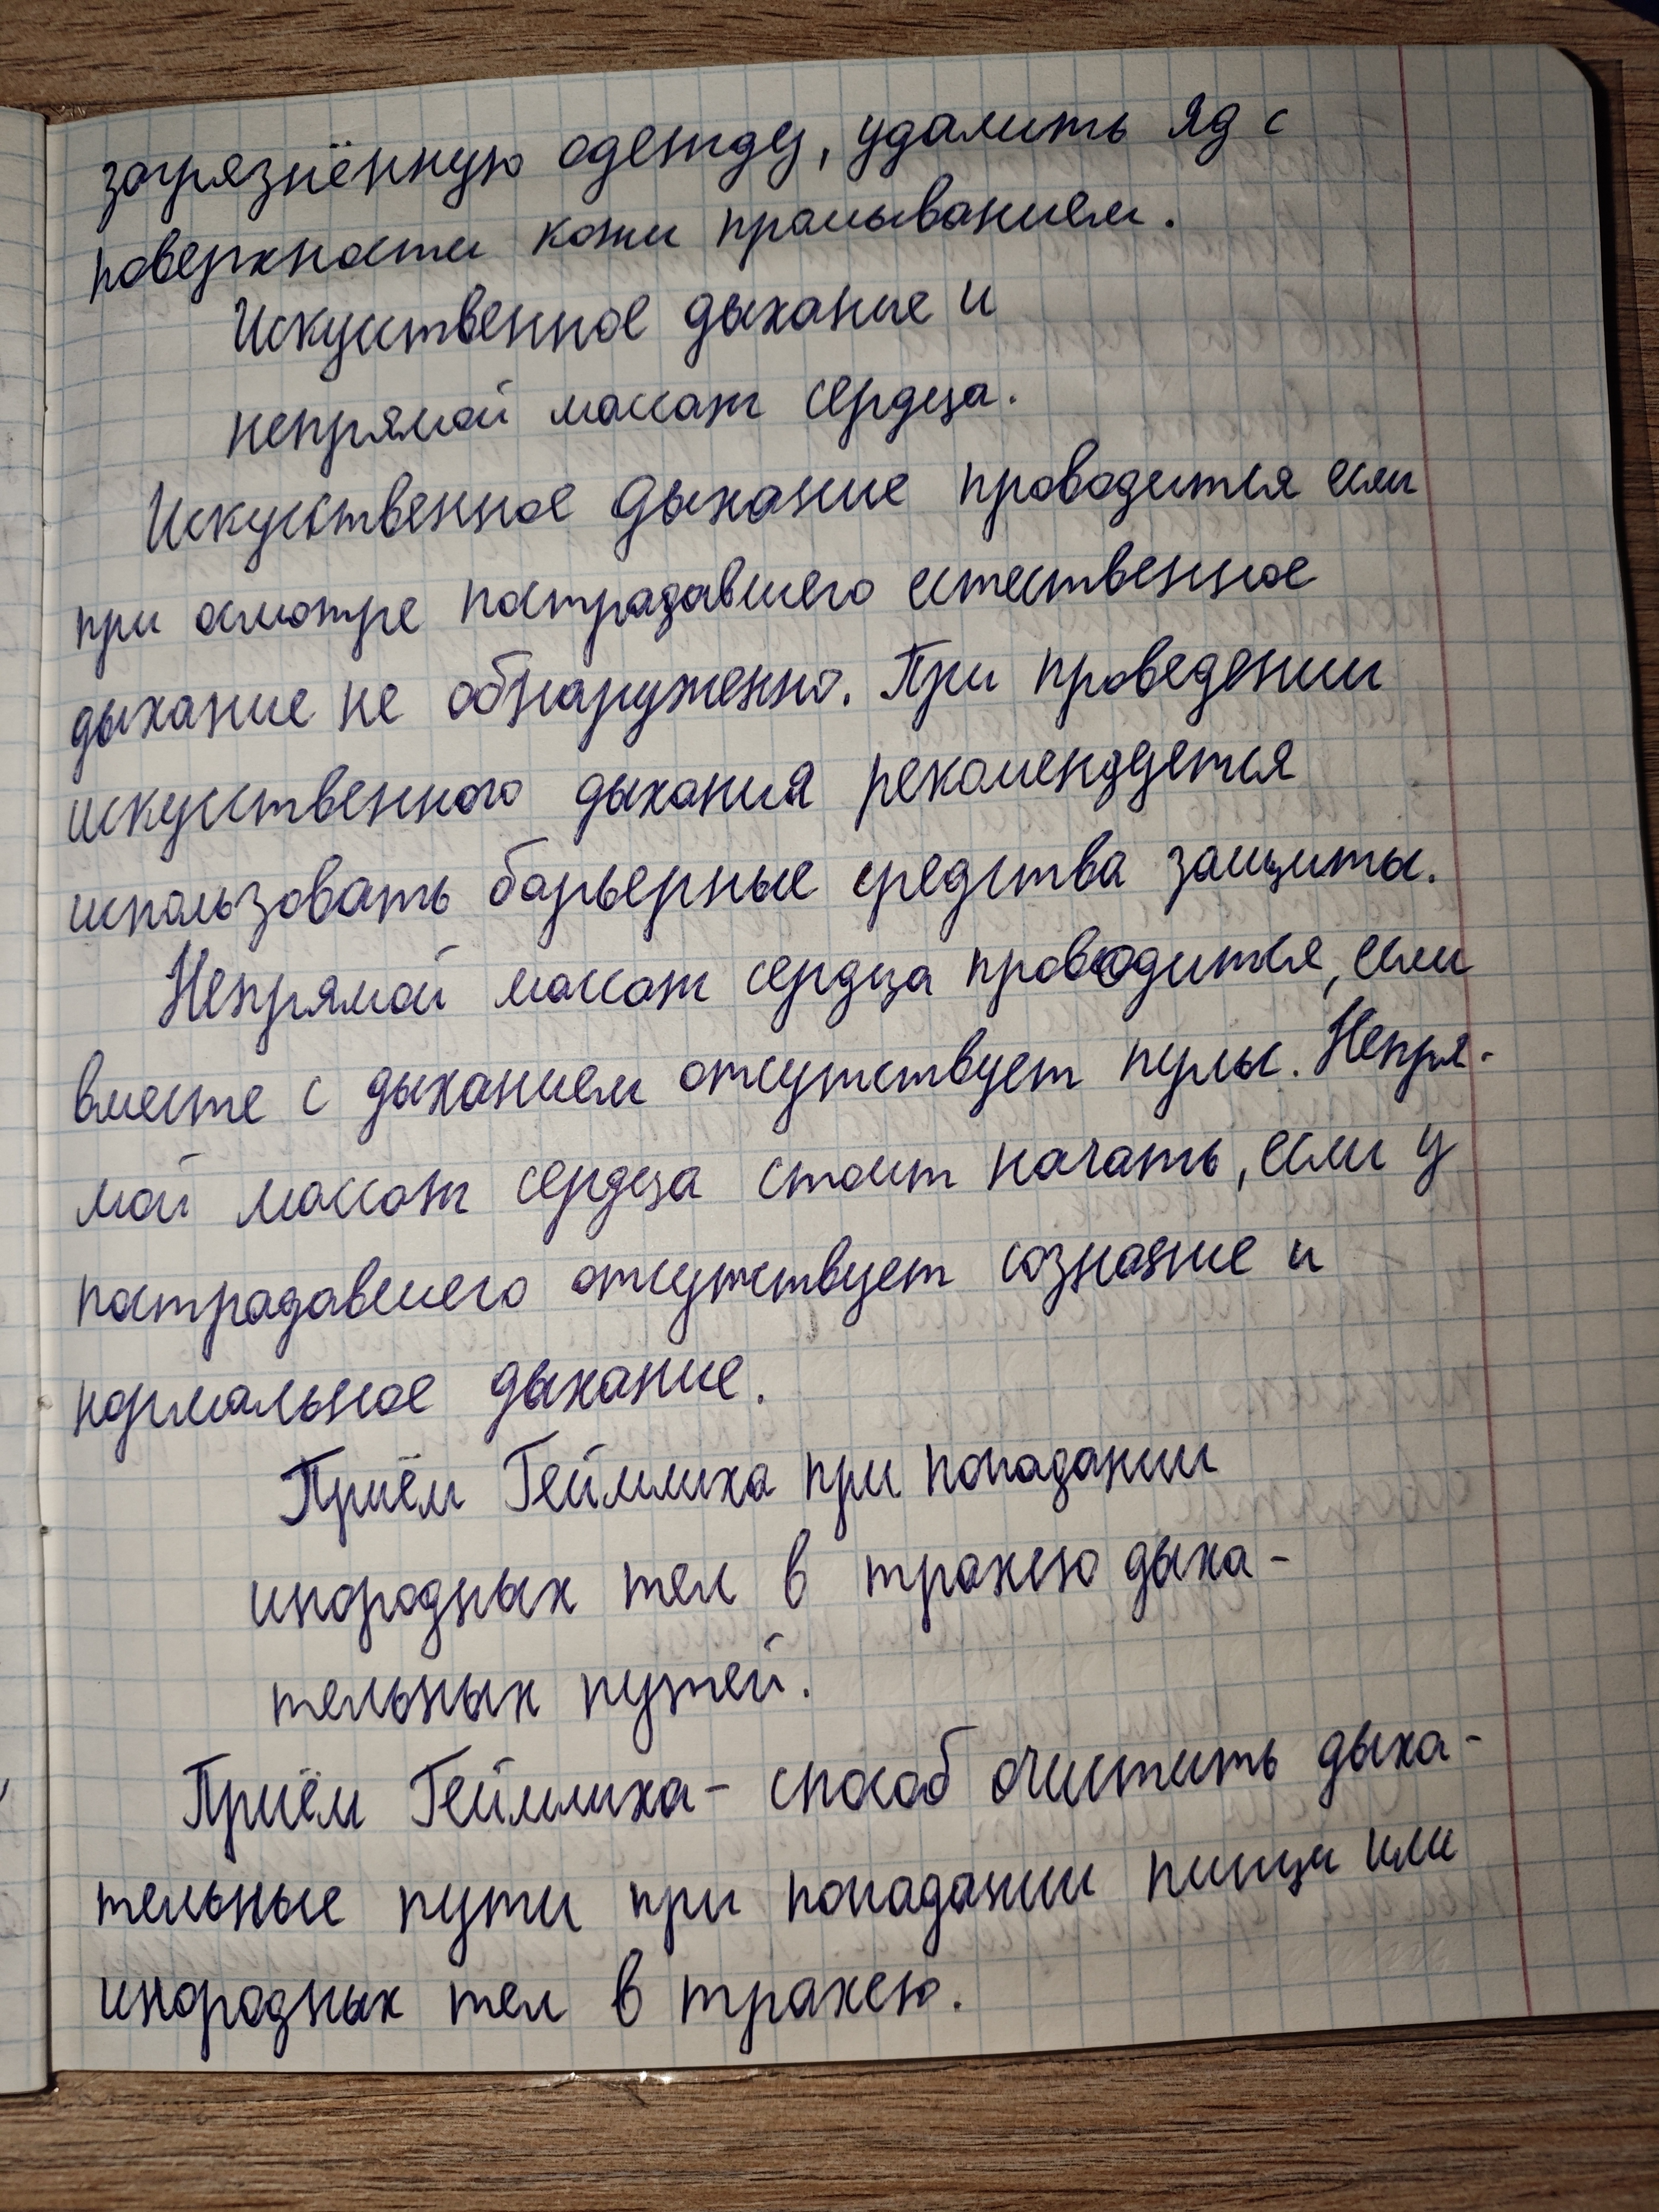 загрязнённую одежду, удалить яд с
поверхности кожи промыванием.
Искуственное дыхание и
непрямой массаж сердца.
Искуственное дыхание проводится если
при осмотре пострадавшего естественное
дыхание не обнаруженно. При проведении
искусственного дыхания рекомендуется
использовать барьерные средства защиты.
Непрямой массаж сердца проводится, если
вместе с дыханием отсутствует пульс. Непря-
мой массаж сердца стоит начать, если у
пострадавшего отсутствует сознание и
нормальное дыхание.
Приём Геймлиха при попадании
инородных тел в трахею дыха-
тельных путей.
Приём Геймлиха - способ очистить дыха-
тельные пути при попадании пищи или
инородных тел в трахею.